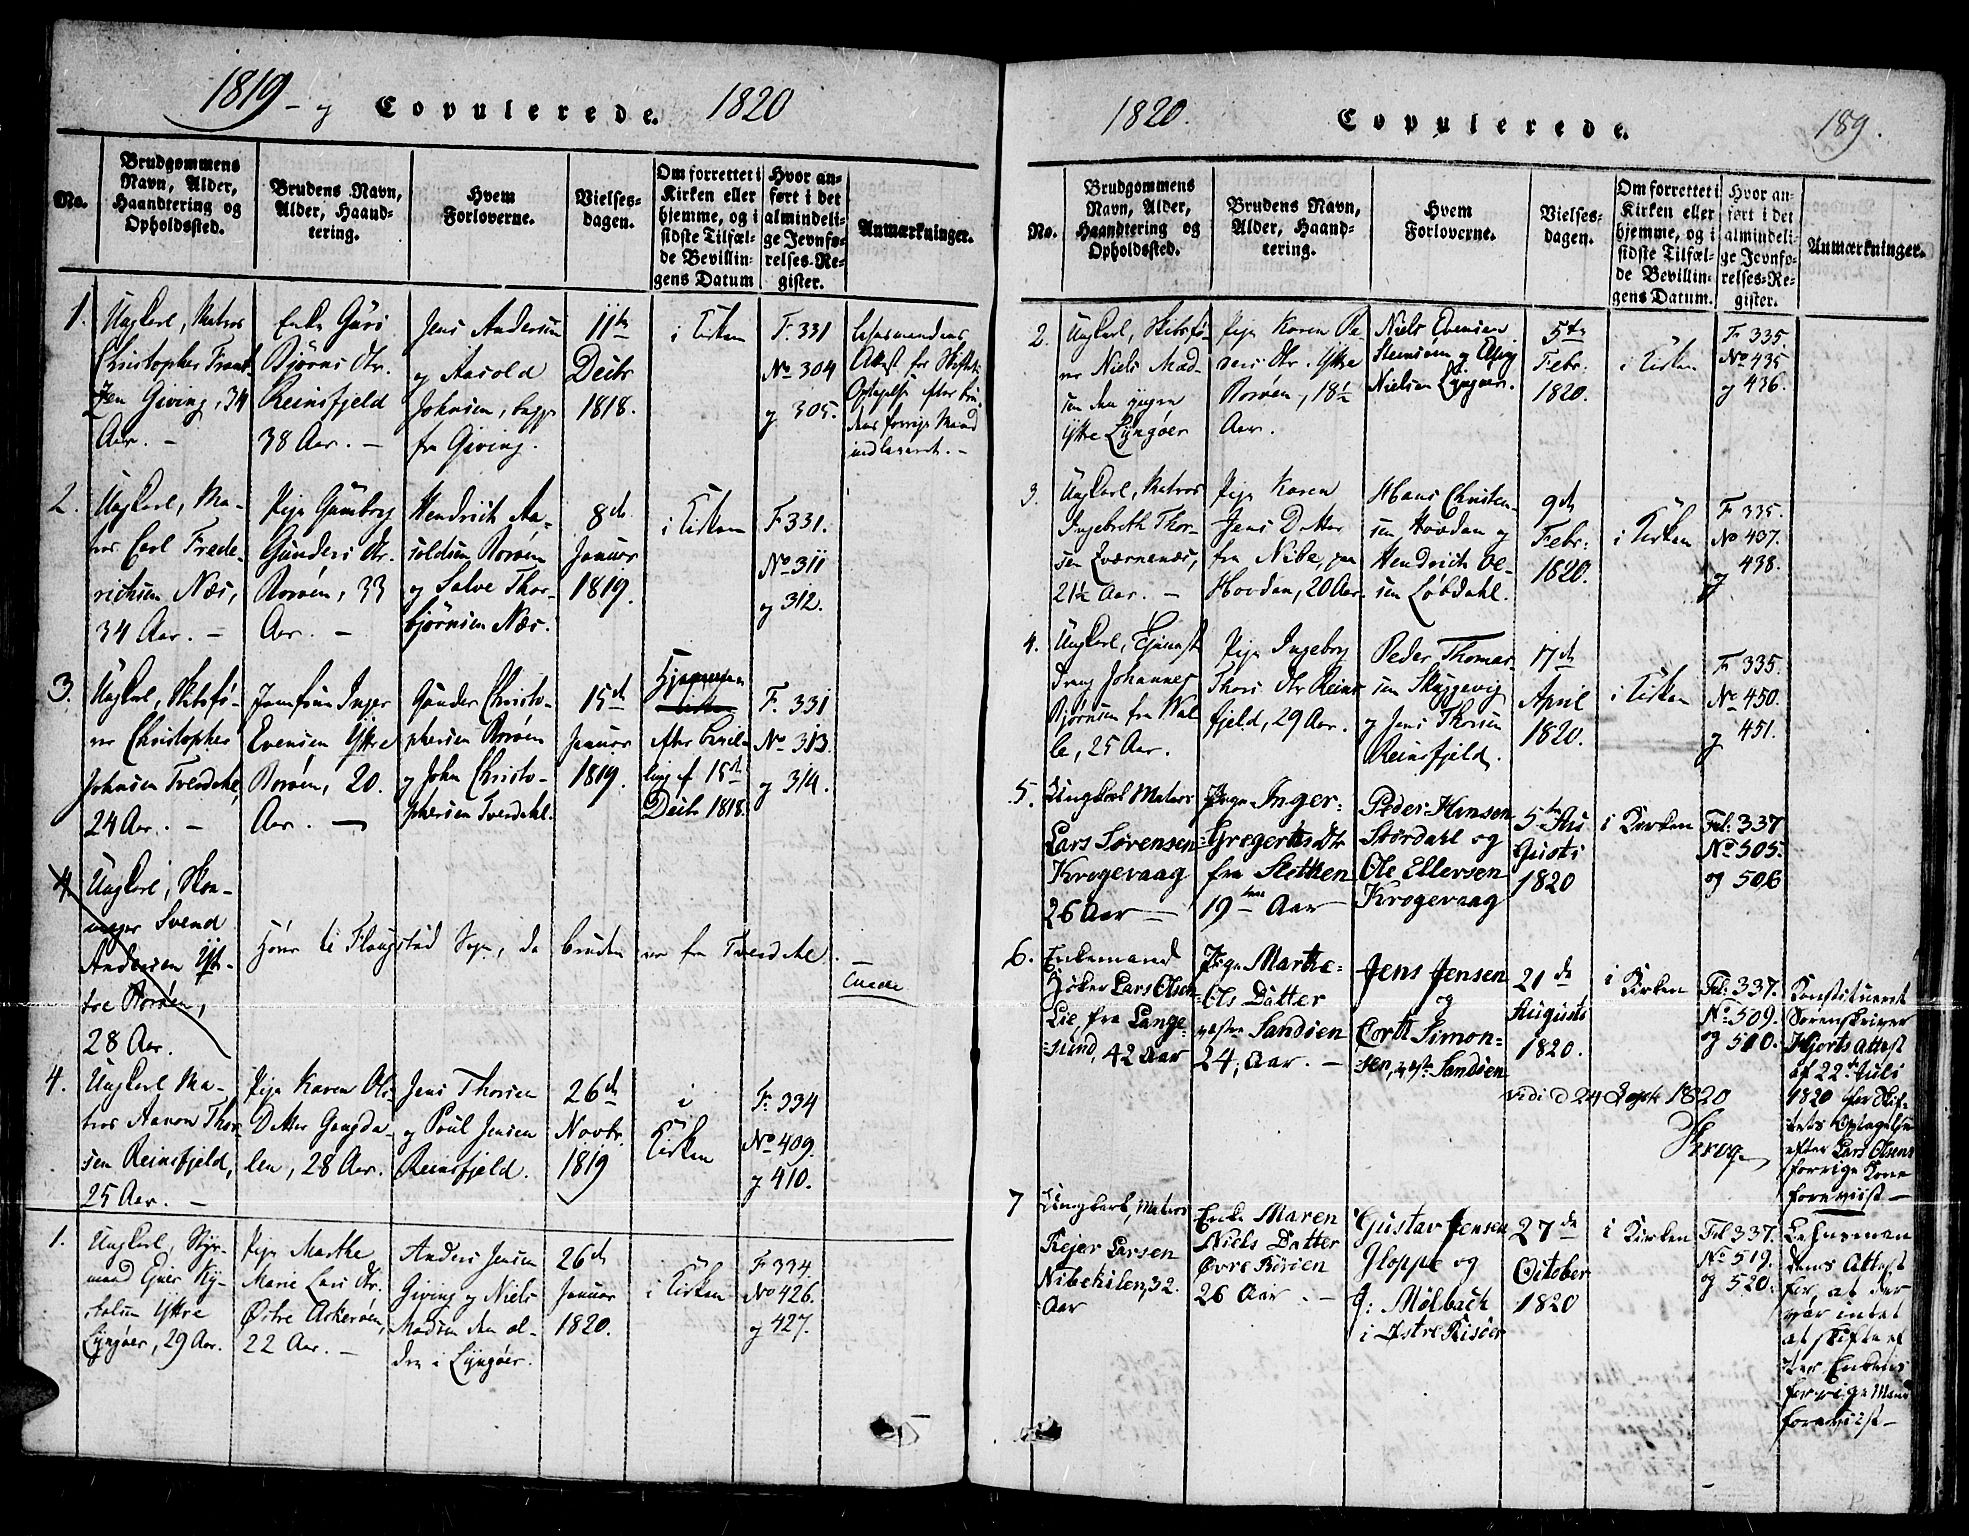 1819 - og Copulerede. 1820
No.
Brudgommens
Navn, Alder,
Haandtering og
Opholdssted.
Brudens Navn,
Alder, Haand-
tering.
Hvem
Forloverne.
Vielses-
dagen.
Om forrettet i
Kirken eller
hjemme, og i
sidste Tilfæl-
de Bevillin-
gens Datum
Hvor an-
ført i det
almindeli-
ge Jevnfø-
relses-Re-
gister.
Anmærkninger.
1.
Ungkarl, Matros
Christopher
Giving, 34
Aar. -
Enke Guri
Bjørns Dtr.
Reinsfjeld
38 Aar. -
Jens Andersen
og Aasold
Johnsen, begge
fra Giving.
11te
Decbr
1818.
i Kirken
F. 331
No 304
og 305.
Lehnsmandens
Attest for Skiftets
Optagelse efter Bru-
dens forrige Mand
indleveret. -
2.
Ungkarl, Ma-
tros Carl Frede-
richsen Næs,
34 Aar. -
Pige Gunborg
Gunders Dtr.
Borøen, 33
Aar. -
Hendrich Aa-
soldsen Borøen
og Salve Thor-
bjørnsen Næs.
8de
Januar
1819.
i Kirken
F 331.
No 311
og 312.
3.
Ungkarl, Skibsfø-
rer Christopher
Johnsen Tverdahl,
24 Aar. -
Jomfrue Inger
Evensen Yttre
Borøen, 20.
Aar. -
Gunder Christo-
phersen Borøen
og John Christo-
phersen Tverdahl.
15de
Januar
1819.
Hjemme
efter Bevil-
ling af 15de
Decbr 1818.
F. 331
No 313.
og 314.
4
Ungkarl,
Svend
Andersen Yt-
tre Borøen,
28 Aar.
Hører til Flaugstad Sogn, da Bruden er fra Tverdahl.
4.
Ungkarl Ma-
tros Aanon Thor-
sen Reinsfjeld,
25 Aar. -
Pige Karen Ols
Datter Gongda-
len, 28 Aar.
Jens Thorsen
og Poul Jensen
Reinsfjeld.
26de
Novbr.
1819
i
Kirken
F. 334
No 409.
og 410.
1.
Ungkarl, Styr-
mand Ejner
Yttre
Lyngøer, 29 Aar.
Pige Marthe
Marie Lars Dtr.
Østre Askerøen,
22 Aar. -
Anders Jensen
Giving og Niels
Madsen den æl-
dre i Lyngøer.
26de
Januar
1820.
i Kirken
F 334.
No 426.
og 427.
1820. Copulerede. 189.
No.
Brudgommens
Navn, Alder,
Haandtering og
Opholdssted.
Brudens Navn,
Alder, Haand-
tering.
Hvem
Forloverne.
Vielses-
dagen.
Om forrettet i
Kirken eller
hjemme, og i
sidste Tilfæl-
de Bevillin-
gens Datum.
Hvor an-
ført i det
almindeli-
ge Jevnfø-
relses-Re-
gister.
Anmærkninger.
2.
Ungkarl, Skibsfø-
rer Niels Mad-
sen den yngre
Yttre Lyngøer
Pige Karen
Dtr. Yttre
Borøen, 18½
Aar.
Niels Evensen
og
Nielsen Lyngøer.
5te
Febr.
1820.
i Kirken
F 335.
No 435
og 436.
3.
Ungkarl, Matros
Ingebreth Thor-
sen Qværnenæs,
21½ Aar. -
Pige Karen
Jens Datter
fra Nibe, paa
Hovdan, 20 Aar.
Hans Christen-
sen Hovdan og
Hendrich
sen Løbdahl.
9de
Febr.
1820.
i Kirken
F 335.
No 437.
og 438.
4.
Ungkarl, Tjeneste
dreng Johannes
Bjørnsen fra Val
le, 25 Aar.
Pige Ingeborg
Thors Dtr Reins
fjeld, 29 Aar.
Peder Thomas-
sen Skuggevig
og Jens Thorsen
Reinsfjeld.
17de
April
1820.
i Kirken
F 335.
No 450.
og 451.
5.
Ungkarl Matros
Lars Sørensen
Krogevaag
26 Aar -
Pige Inger
Gregerths Dtr
fra Slethen
19 Aar
Peder Hansen
Stordahl og
Ole Ellersen
Krogevaag
5te Au
gusti
1820
i Kirken
Fol: 337
No 505.
og 506
6.
Enkemand
Høker Lars Olsen
Lie, fra Lange-
sund, 42 Aar
Pige Marthe
Ols Datter
vestre Sandøen
24, Aar. -
Jens Jensen
og
Corth Simon-
sen, vestre Sandøen
21de
Augusti
1820.
i Kirken
Fol: 337.
No 509.
og 510.
Konstitueret
Sorenskriver
Hjorts Attest
af 22de Juli
1820 for Skif-
tets Optagelse
efter Lars Olsens
forrige Kone
foreviist -
vidi d 24 Sept 1820
Krog
7
Ungkarl, Matros
Rejer Larsen
Nibekilen, 32.
Aar
Enke Maren
Niels Datter
Øvre Børøen
26 Aar. -
Gustav Jensen
Gloppe og
J: Mølbach
i Østre Risöer
27de
October
1820
i Kirken
Fol 337.
No 519.
og 520.
Lehnsman
dens Attest
for, at der
var intet
at skifte ef
ter Enkens
forrige Mand
foreviist -